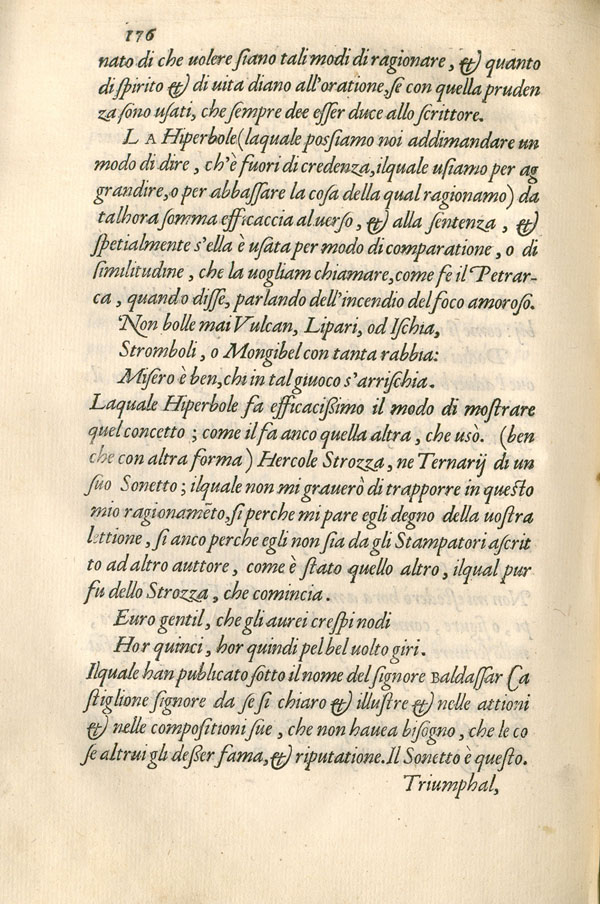 176
nato di che uolere ſiano tali modi di ragionare, & quanto
di ſpirito & di uita diano all'oratione, ſe con quella pruden
za ſono uſati, che ſempre dee eſſer duce allo ſcrittore.
LA Hiperbole (laquale poſsiamo noi addimandare un
modo di dire, ch'è fuori di credenza, ilquale uſiamo per ag
grandire, o per abbaſſare la coſa della qual ragionamo) da
talhora ſomma efficaccia al uerſo, & alla ſentenza, &
ſpetialmente s'ella è uſata per modo di comparatione, o di
ſimilitudine, che la uogliam chiamare, come fe il Petrar-
ca, quando diſſe, parlando dell'incendio del foco amoroſo.
Non bolle mai Vulcan, Lipari, od Iſchia,
Stromboli, o Mongibel con tanta rabbia:
Miſero è ben, chi in tal giuoco s'arriſchia.
Laquale Hiperbole fa efficaciſsimo il modo di moſtrare
quel concetto; come il fa anco quella altra, che usò. (ben
che con altra forma) Hercole Strozza, ne Ternarij di un
ſuo Sonetto; ilquale non mi grauerò di trapporre in queſto
mio ragionamẽto, ſi perche mi pare egli degno della uoſtra
lettione, ſi anco perche egli non ſia da gli Stampatori aſcrit
to ad altro auttore, come è ſtato quello altro, ilqual pur
fu dello Strozza, che comincia.
Euro gentil, che gli aurei creſpi nodi
Hor quinci, hor quindi pel bel uolto giri.
Ilquale han publicato ſotto il nome del ſignore Baldaſſar Ca
ſtiglione ſignore da ſe ſi chiaro & illuſtre & nelle attioni
& nelle compoſitioni ſue, che non hauea biſogno, che le co
ſe altrui gli deſſer fama, & riputatione. Il Sonetto è queſto.
Triumphal,